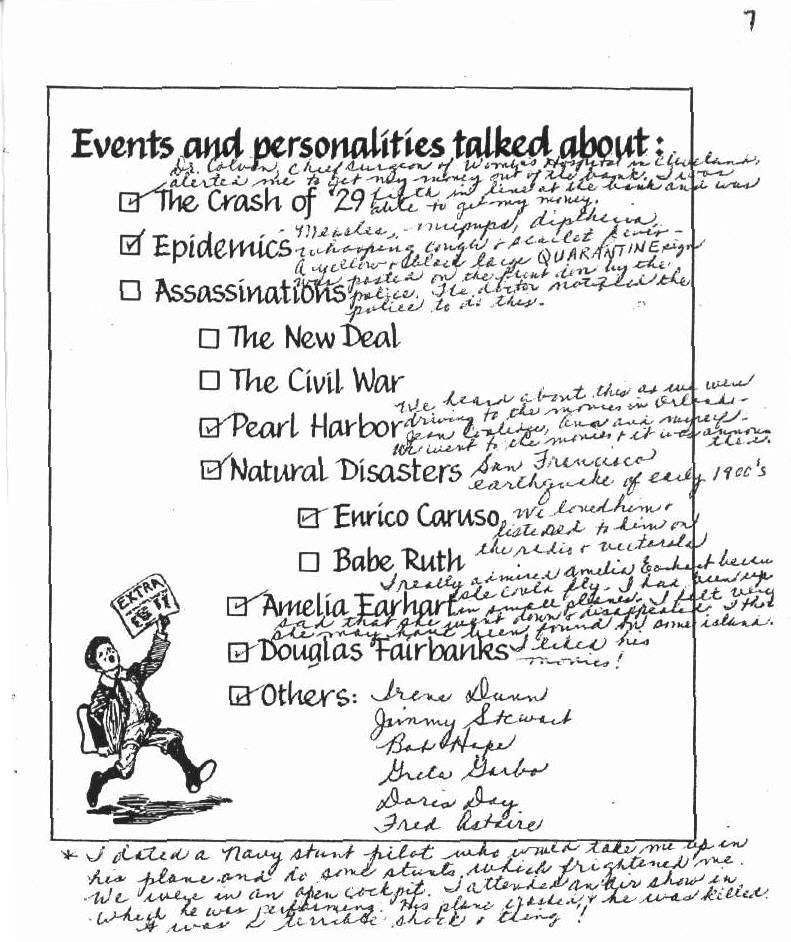 7
Events and personalities talked about:
Dr. Colvin, Chief Surgeon of Womens Hospital in Cleveland,
alerted me to get my money out of the bank. I was
fifth in line at the bank and was
☑ The Crash of '29 able to get my money.
Measles, mumps, diptheria
☑ Epidemics whooping cough & scarlet fever -
A yellow & black large QUARANTINE sign
was posted on the front door by the
☐ Assassinations police. The doctor notified the
police to do this.
☐ The New Deal
☐ The Civil War
We heard about this as we were
☑ Pearl Harbor driving to the movies in Orlando -
Jean Ana and myself -
We went to the movies & it was announ
there.
☑ Natural Disasters San Francisco
earthquake of early 1900's
☑ Enrico Caruso, We loved him &
listened to him on
the radio & victorola
☐ Babe Ruth
I really admired Amelia Earhart becau
she could fly. I had been up
☑ Amelia Earhart in small planes. I felt very
sad that she went down & disappeared. I thot
she may have been found on some island.
☑ Douglas Fairbanks I liked his
movies!
EXTRA
☑ Others: Irene Dunn
Jimmy Stewart
Bob Hope
Greta Garbo
Doris Day
Fred Astaire
* I dated a Navy stunt pilot who would take me up in
his plane and do some stunts which frightened me.
We were in an open cockpit. I attended an air show in
which he was performing. His plane crashed & he was killed.
It was a terrible shock & thing!